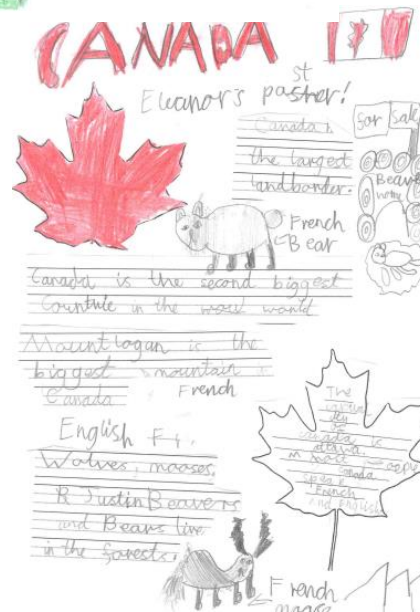 CANADA
st
Eleanor's paster!
Canada
the largest
landborder.
for Sale
Beave
French
Bear
Canada is the second biggest
Countrie in the world
Mount logan is the
biggest mountain
Canada
French
English
Wolves, mooses,
R JustinBeavers
and Bears live
in the forests.
The
Canada is
in
Canada
speak
French
and English
French
moose